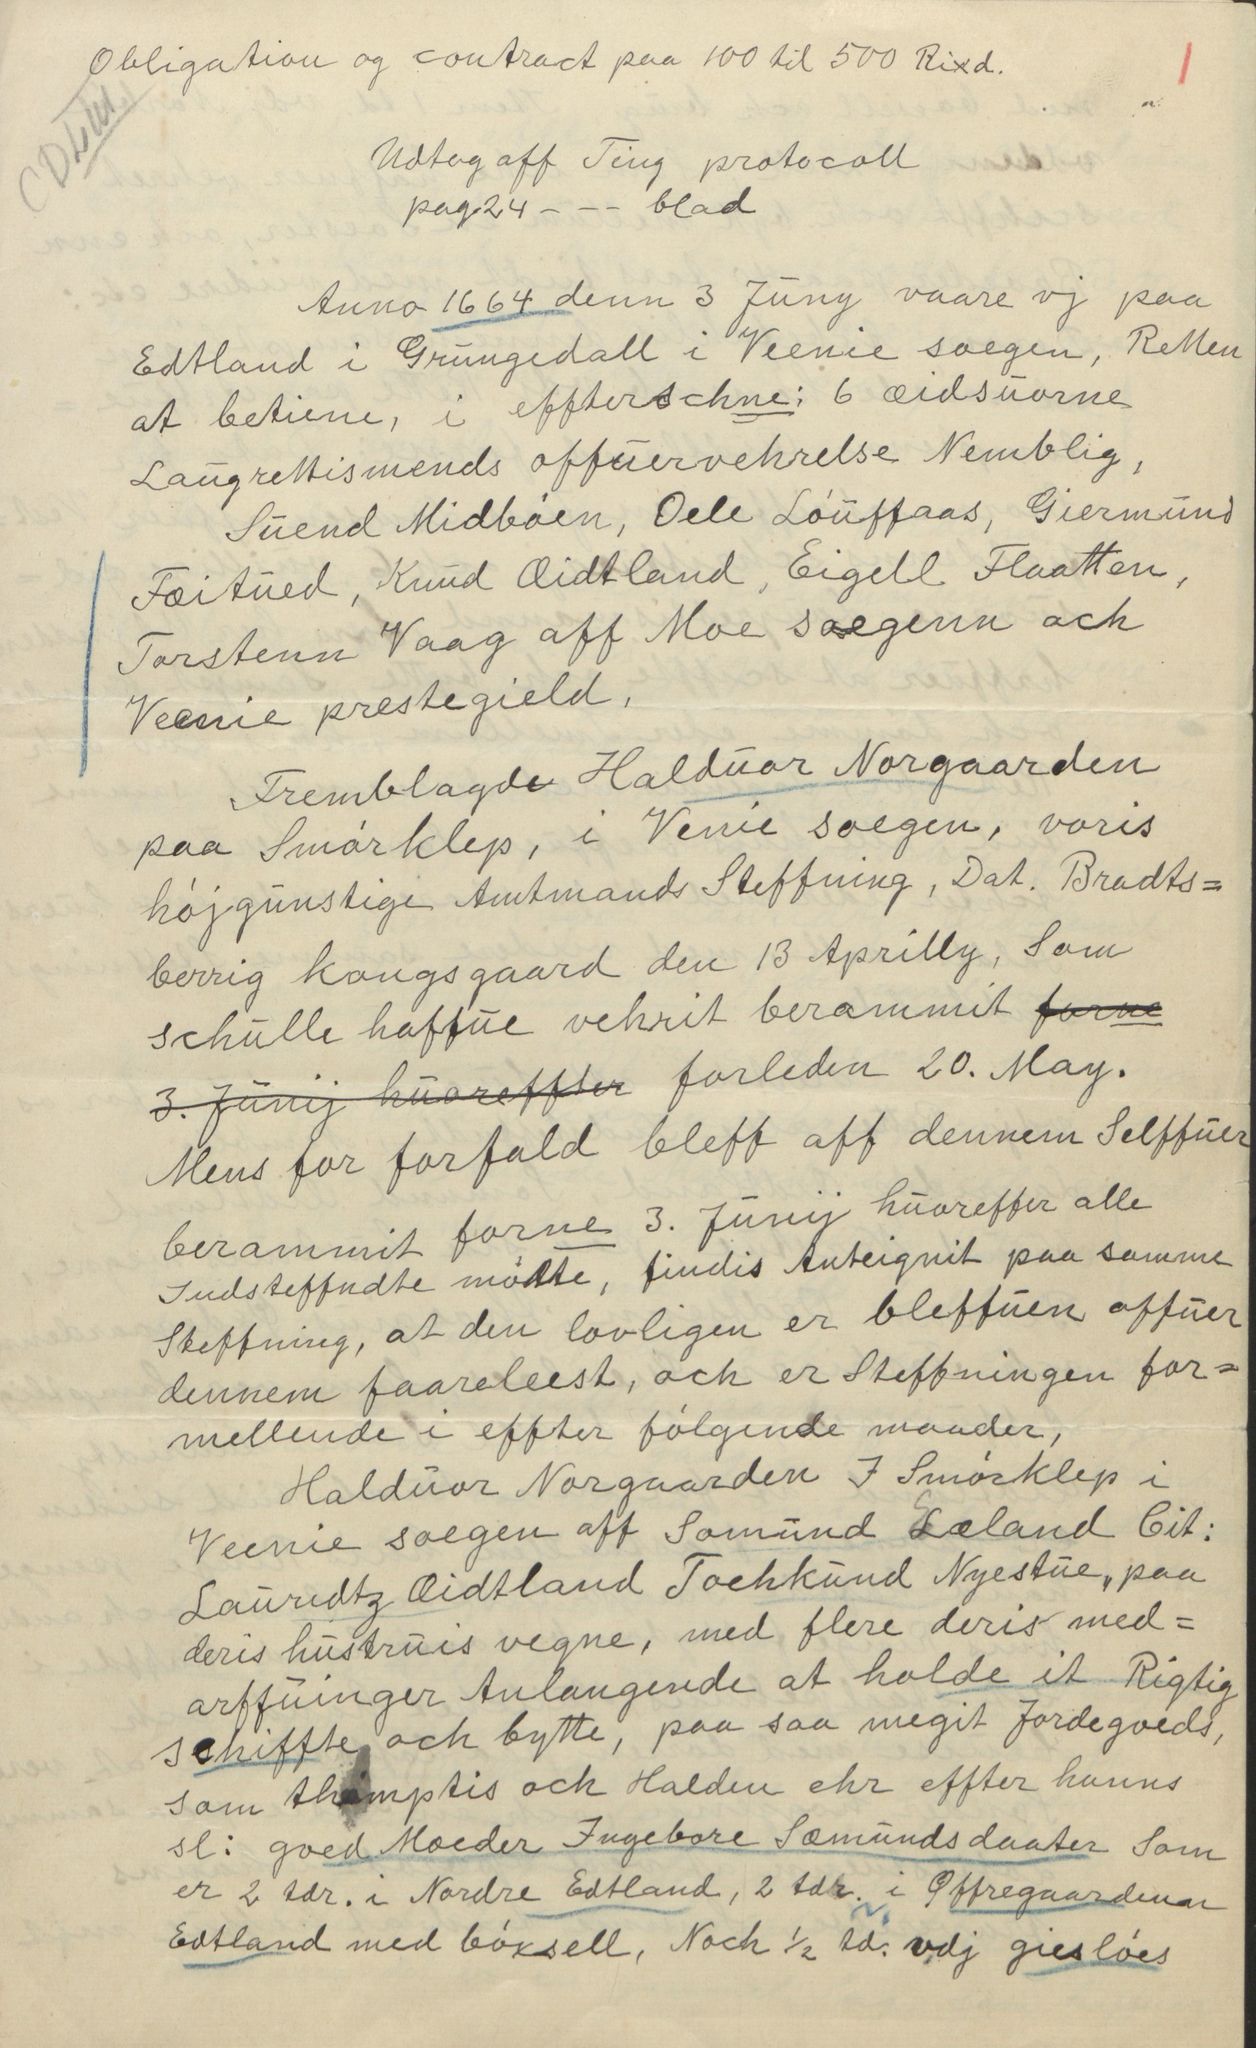 Obligation og contract paa 100 til 500 Rixd.
1
Udtog aff Ting protocoll
pag. 24 - - - blad
Anno 1664 denn 3 Jüny vaare vj paa
Edtland i Grüngedall i Veenie soegen, Retten
at betiene, i effterschne: 6 æidsüorne
Laügrettismends offüervehrelse Nemblig,
Süend Midbóen, Oele Lóüffaas, Giermünd
Fæitüed, Knüd Œidtland, Eigell Flaatten,
Torstenn Vaag aff Moe soegenn och
Veenie prestegield.
Fremblagde Haldüor Norgaarden
paa Smórklep, i Venie soegen, voris
hójgünstige Amtmands Steffning, Dat. Bradts=
berrig kongsgaard den 13 Aprilly, Som
schülle haffüe vehrit berammit forne
3. Jünij hüoreffter forleden 20. May.
Mens for forfald bleff aff dennem Selffüer
berammit forne 3. Jünij hüoreffer alle
Indsteffndte módte, findis Anteignit paa samme
Steffning, at den lovligen er bleffüen offüer
dennem faareleest, och er Steffningen for=
mellende i effter fólgende maader,
Haldüor Norgaarden I Smórklep i
Veenie soegen aff Somünd Læland Cit:
Lauridtz Œidtland Tochkünd Nyestüe, paa
deris hüstrüis vegne, med flere deris med=
arffüinger Anlangende at holde it Rigtig
schiffte och bytte, paa saa megit Jordegoeds,
som thimptis och Halden ehr effter hanns
sl: goed Moeder Ingebore Sæmündsdaater Som
er 2 tdr. i Nordre Edtland, 2 tdr. i Øffregaardenn
Edtland med bóxsell, Noch ½ td. vdj giesløes